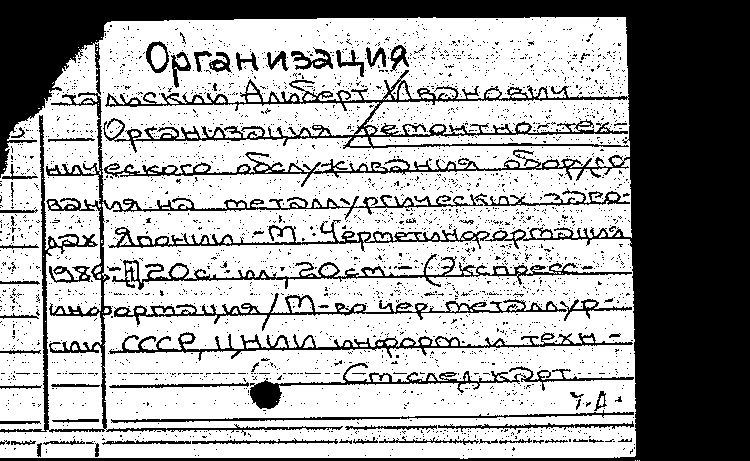 Организация
Стальский, Альберт Иванович.
Организация ремонтно-тех-
нического обслуживания оборудо-
вания на металлургических заво-
дах Японии. -М. Черметинформация,
1986.- 20с.: ил.; 20см. - (Экспресс-
информация / М-во чер. металлур-
гии СССР, ЦНИИ информ. и техн.-
См. след. карт.